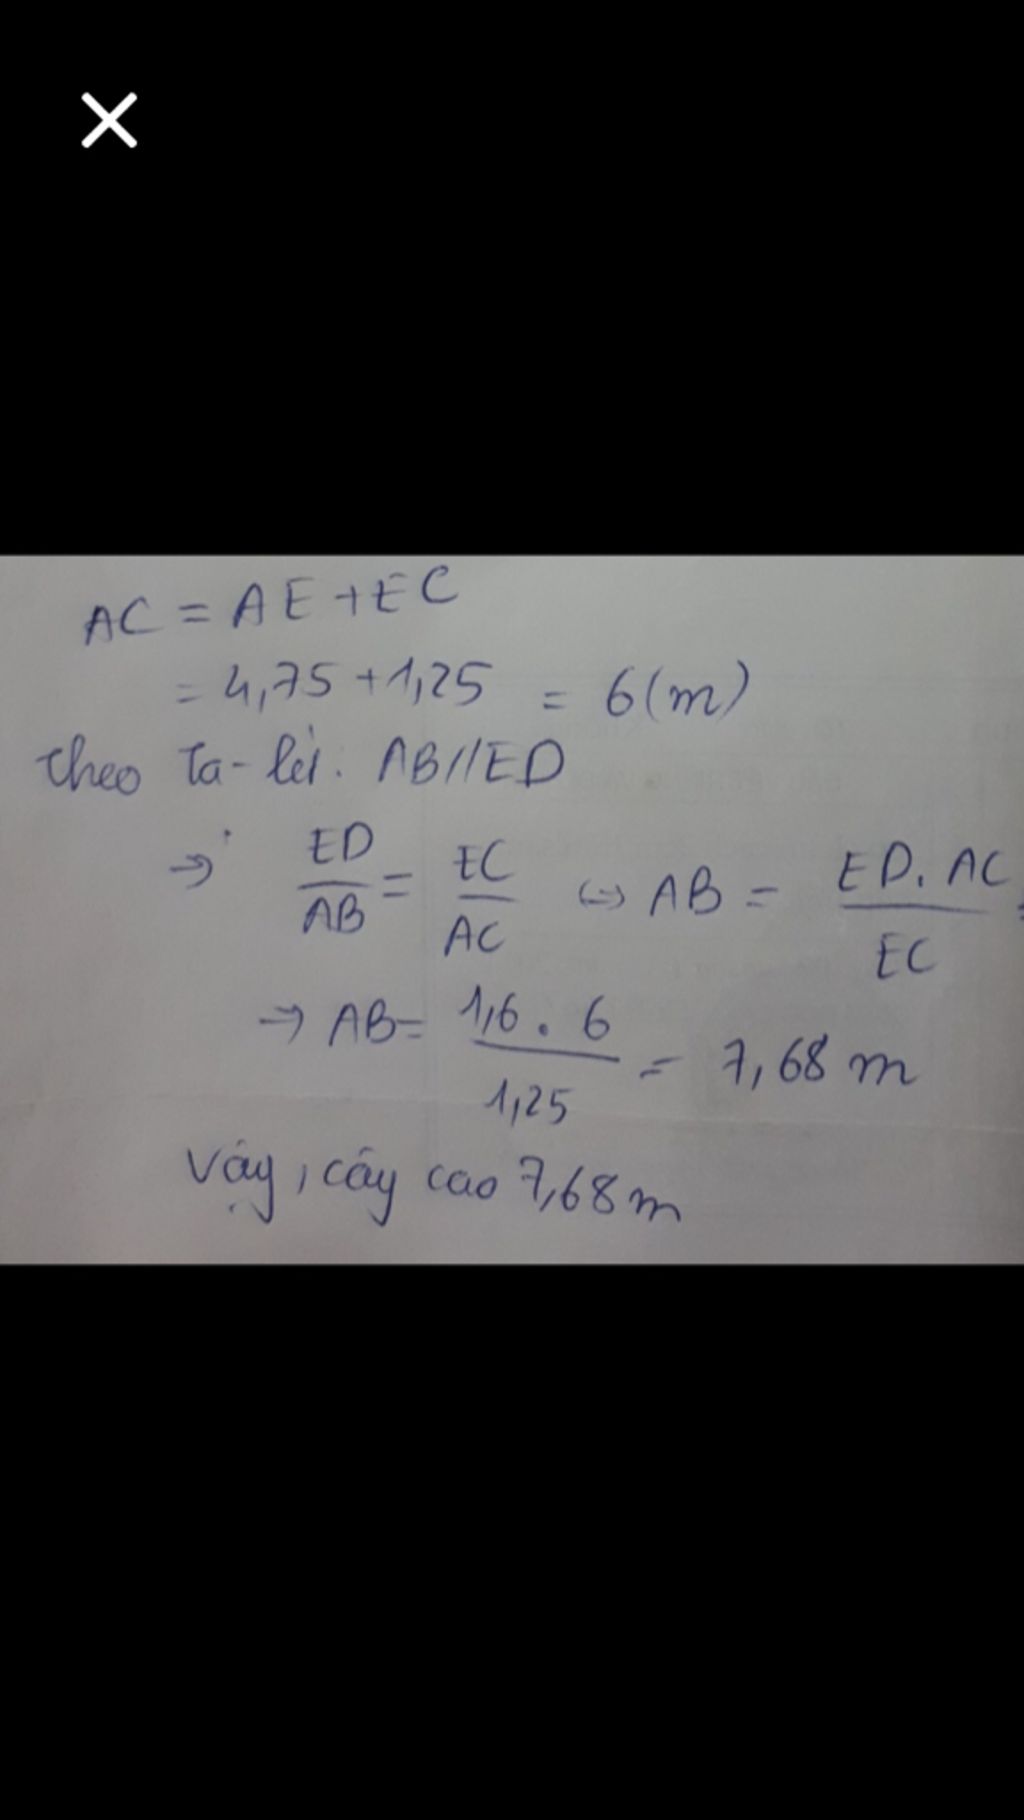 AC = AE + EC
= 4,75 + 1,25 = 6 (m)
theo Ta-lét: AB // ED
→ ED/AB = EC/AC ↔ AB = ED.AC/EC =
→ AB = 1,6 . 6/1,25 = 7,68 m
Vậy, cây cao 7,68m